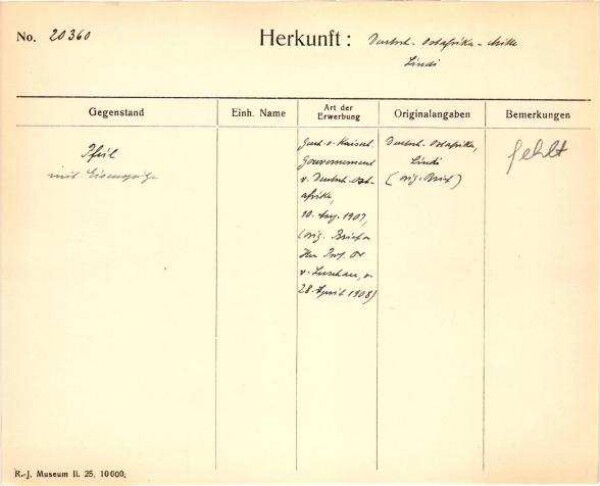 No. 20360
Herkunft: Deutsch-Ostafrika-
Lindi
Gegenstand
Einh. Name
Art der Erwerbung
Originalangaben
Bemerkungen
Pfeil
mit Eisenspitze
v. Kaiserl.
Gouvernement
v. Deutsch-Ost-
afrika,
10. Aug. 1907,
(orig. Brief
Prof. Dr.
v. Luschan, v.
28. April 1908)
Deutsch-Ostafrika,
Lindi
(orig. Brief)
fehlt
R.-J. Museum II. 25. 10000.